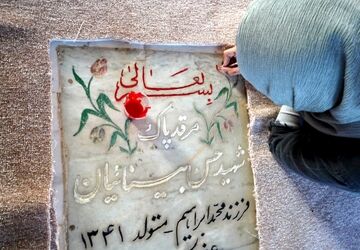 بسمه تعالی
مرقد پاک
شهید حسن بینائیان
فرزند محمد ابراهیم متولد ۱۳۴۱